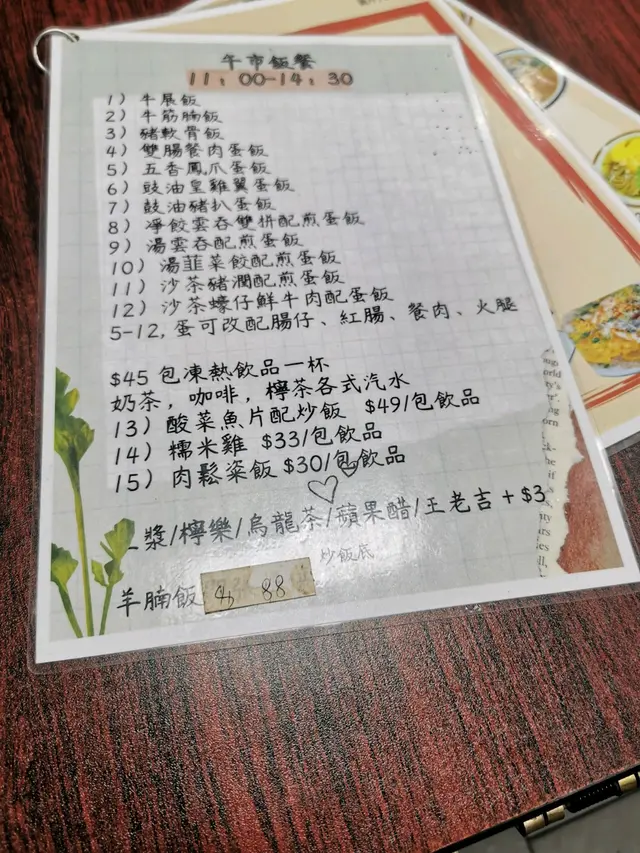 午市飯餐
11：00-14：30
1）牛展飯
2）牛筋腩飯
3）豬軟骨飯
4）雙腸餐肉蛋飯
5）五香鳳爪蛋飯
6）豉油皇雞翼蛋飯
7）鼓油豬扒蛋飯
8）凈餃雲吞雙拼配煎蛋飯
9）湯雲吞配煎蛋飯
10）湯韮菜餃配煎蛋飯
11）沙茶豬潤配煎蛋飯
12）沙茶蠔仔鮮牛肉配蛋飯
5-12, 蛋可改配腸仔、紅腸、餐肉、火腿
$45 包凍熱飲品一杯
奶茶，咖啡，檸茶各式汽水
13）酸菜魚片配炒飯 $49/包飲品
14）糯米雞 $33/包飲品
15）肉鬆粢飯 $30/包飲品
漿/檸樂/烏龍茶/蘋果醋/王老吉 + $3
炒飯底
羊腩飯 88